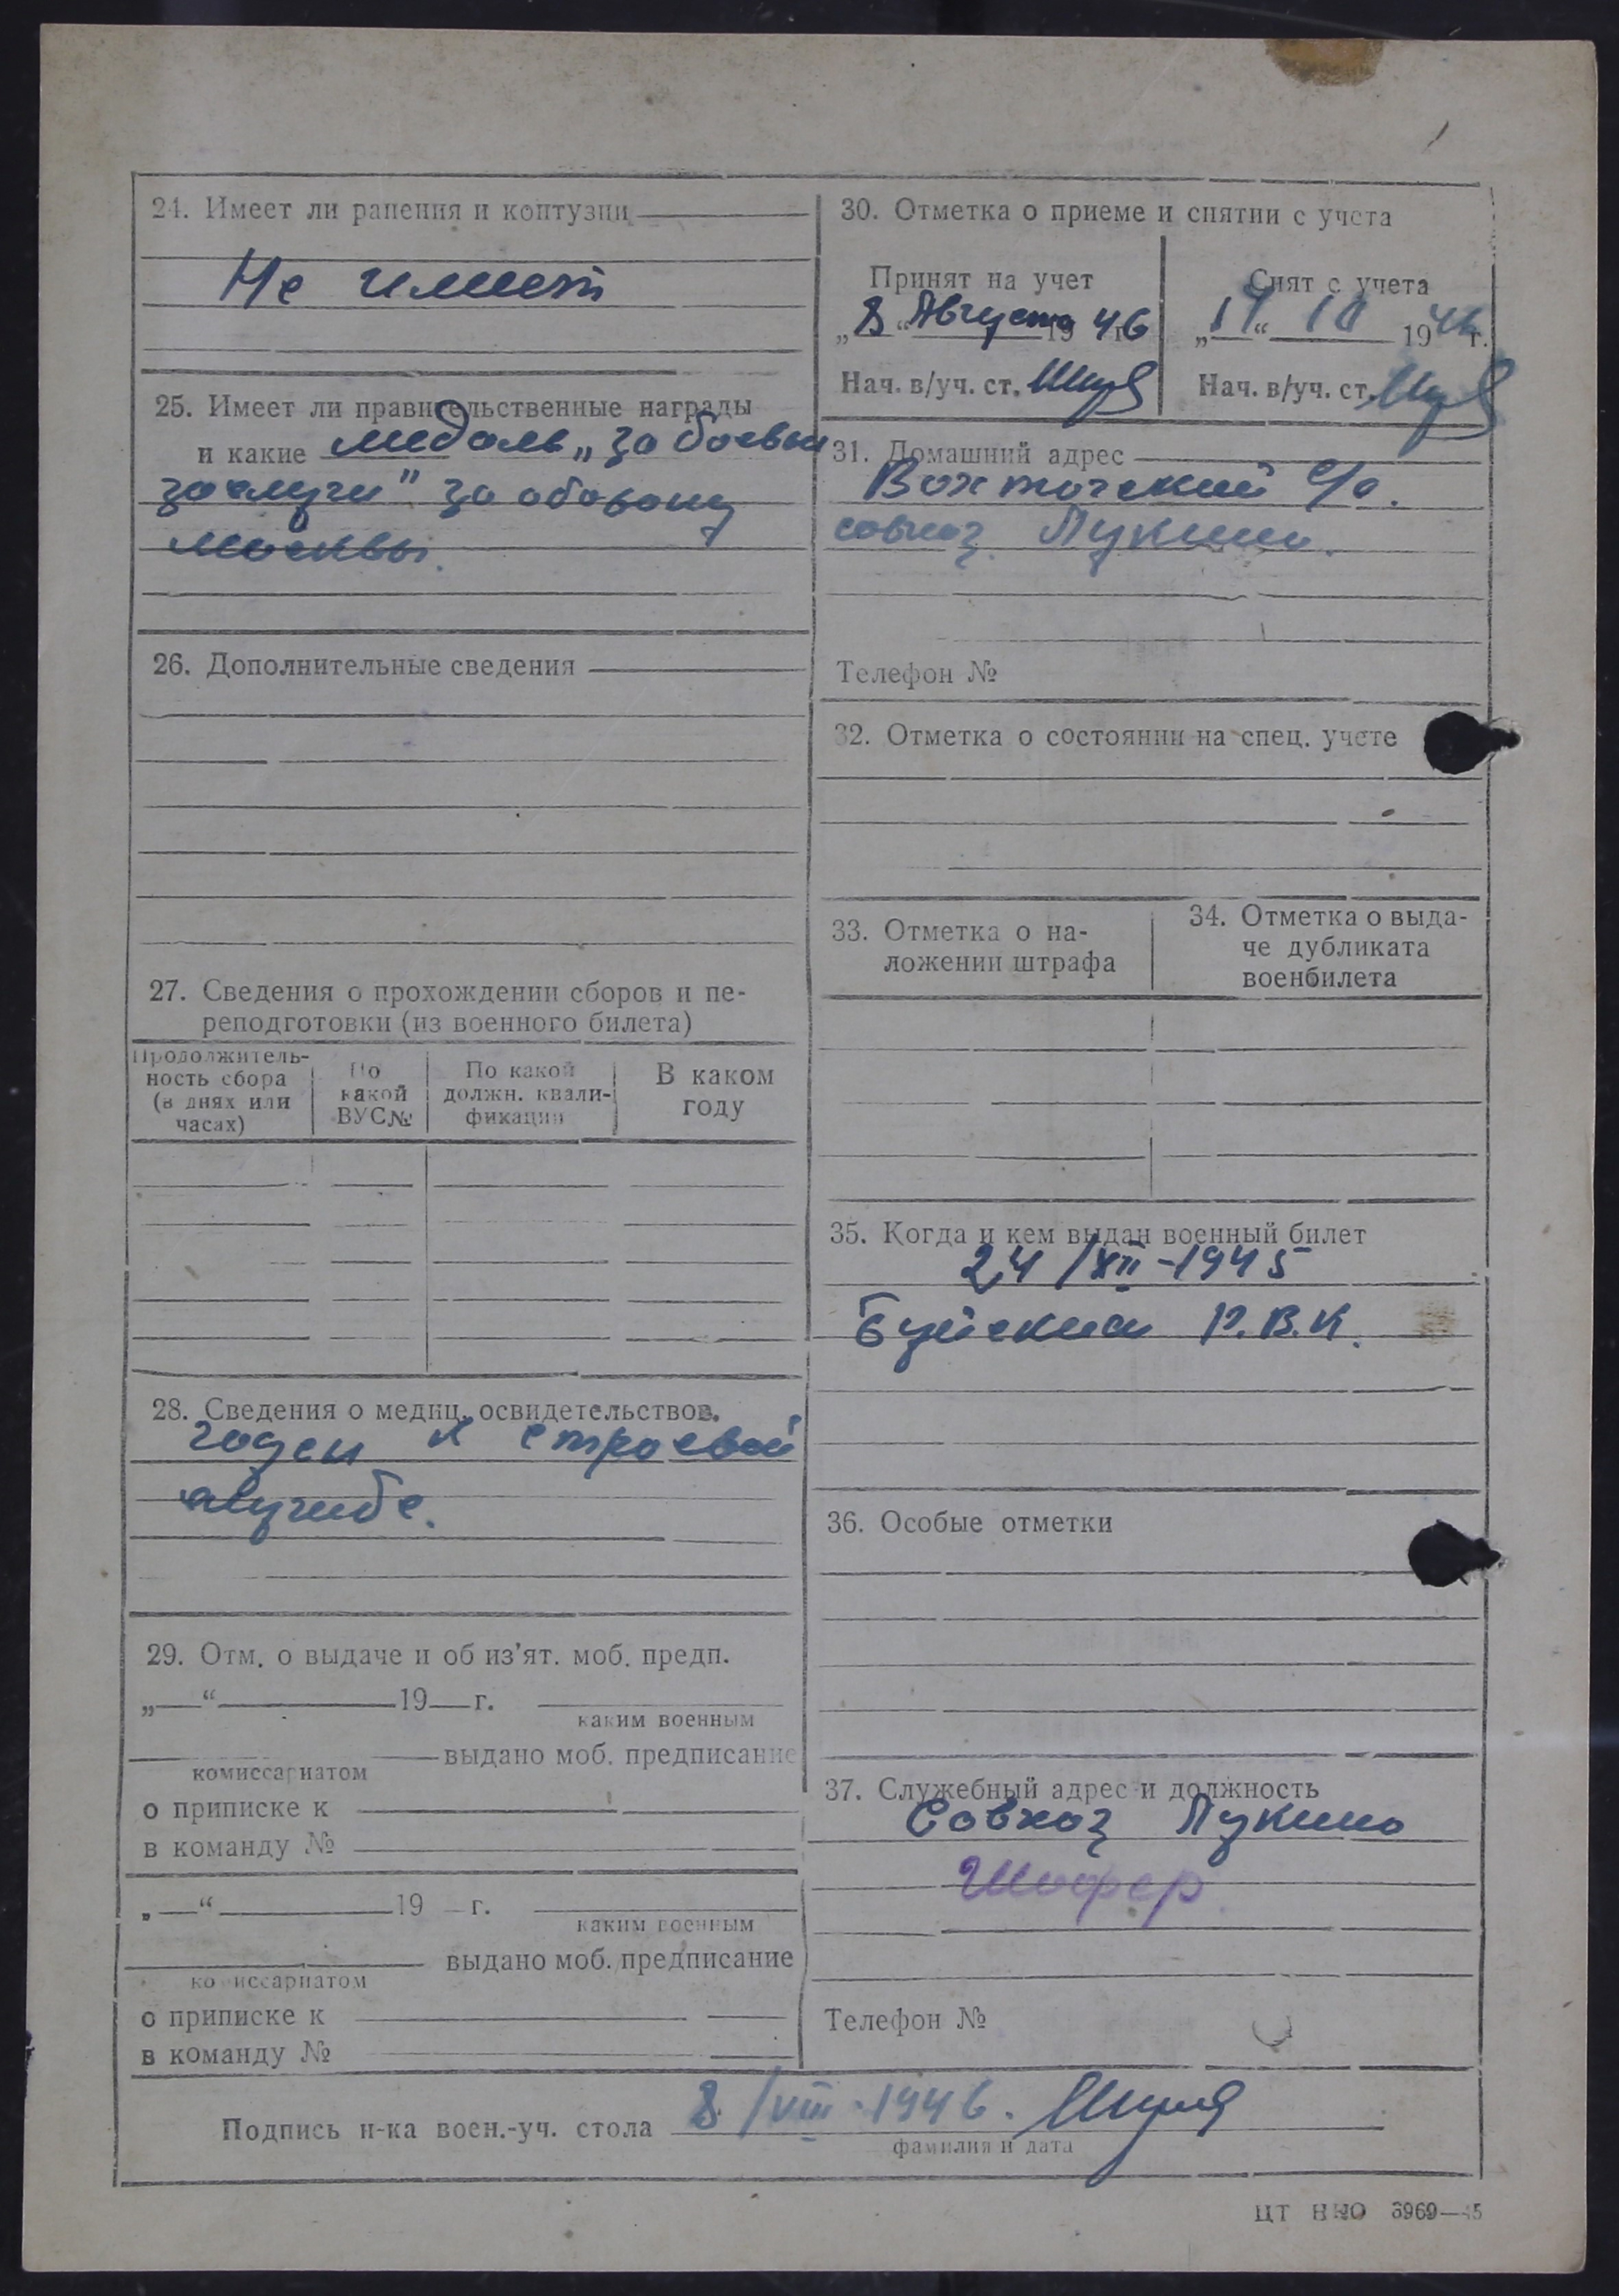 24. Имеет ли ранения и контузии
Не имеет
25. Имеет ли правительственные награды
и какие медаль „за боевые
заслуги" за оборону
Москвы.
26. Дополнительные сведения
27. Сведения о прохождении сборов и пе-
реподготовки (из военного билета)
Продолжитель-
ность сбора
(в днях или
часах)
По
какой
ВУС№
По какой
должн. квали-
фикации
В каком
году
28. Сведения о медиц. освидетельствов.
годен к строевой
службе.
29. Отм. о выдаче и об из'ят. моб. предп.
„ “ 19 г.
каким военным
выдано моб. предписание
комиссариатом
о приписке к
в команду №
„ “ 19 г.
каким военным
выдано моб. предписание
комиссариатом
о приписке к
в команду №
30. Отметка о приеме и снятии с учета
Принят на учет
„8“ Августа 1946 г.
Нач. в/уч. ст.
Снят с учета
„ “ 10 1946 г.
Нач. в/уч. ст.
31. Домашний адрес
Вохтогский с/с.
совхоз Лукино.
Телефон №
32. Отметка о состоянии на спец. учете
33. Отметка о на-
ложении штрафа
34. Отметка о выда-
че дубликата
военбилета
35. Когда и кем выдан военный билет
24/XII-1945
Буйский Р.В.К.
36. Особые отметки
37. Служебный адрес и должность
Совхоз Лукино
Шофер
Телефон №
Подпись н-ка воен.-уч. стола 8/VIII-1946.
фамилия и дата
ЦТ НКО 3969—45